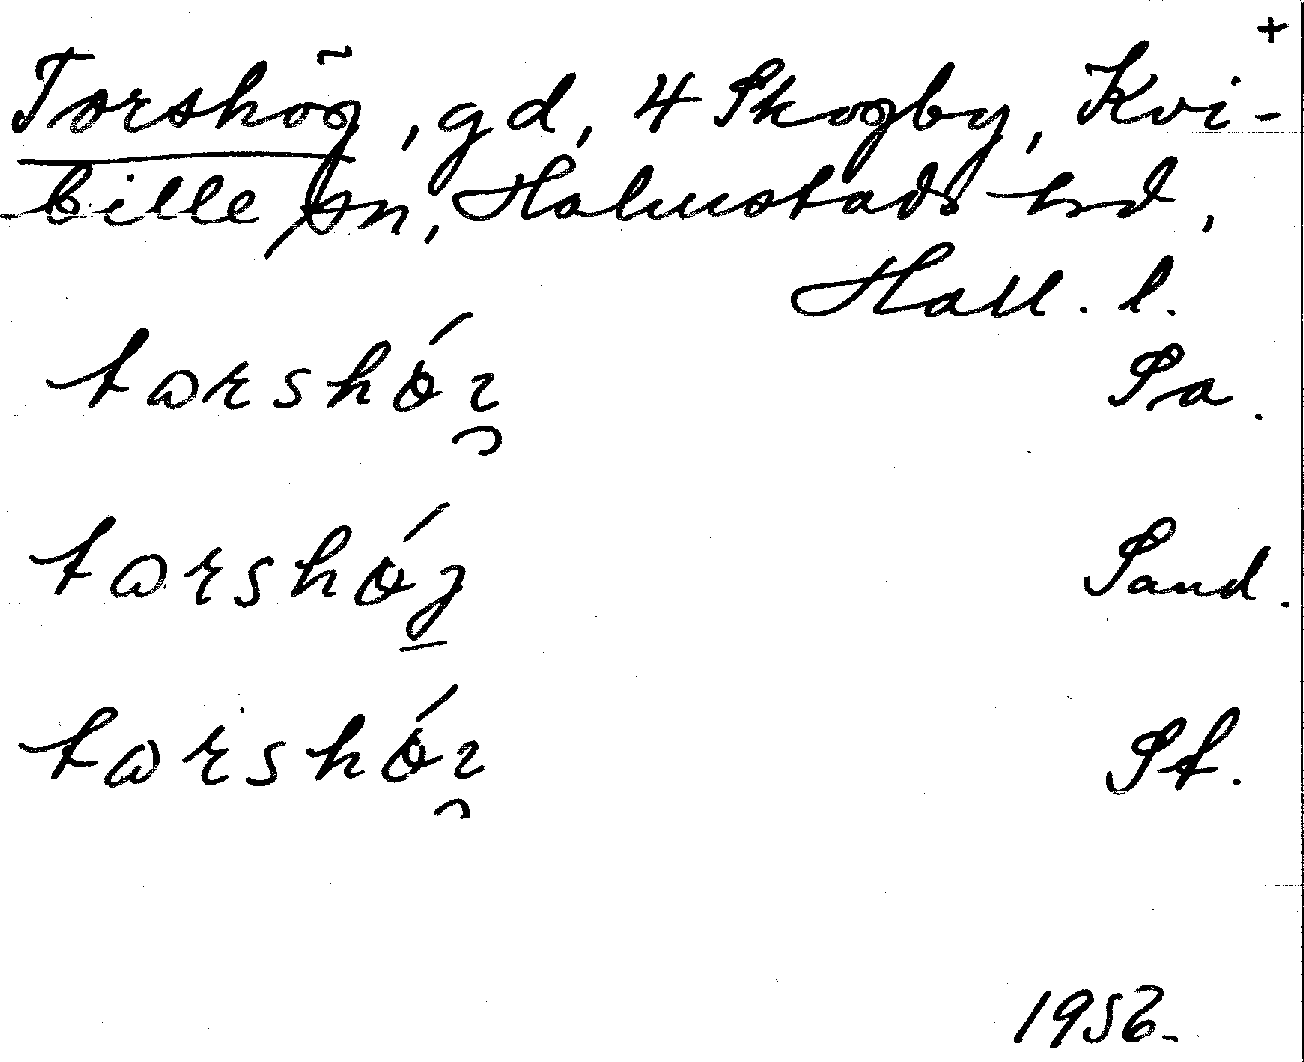 +
Torshög, gd, 4 Skogby, Kvi-
bille sn, Halmstads hd,
Hall. l.
tɷrshǿɿ̯ Sa.
tɷrshǿʒ Sand.
tɷrshǿɿ̯ Sf.
1956.